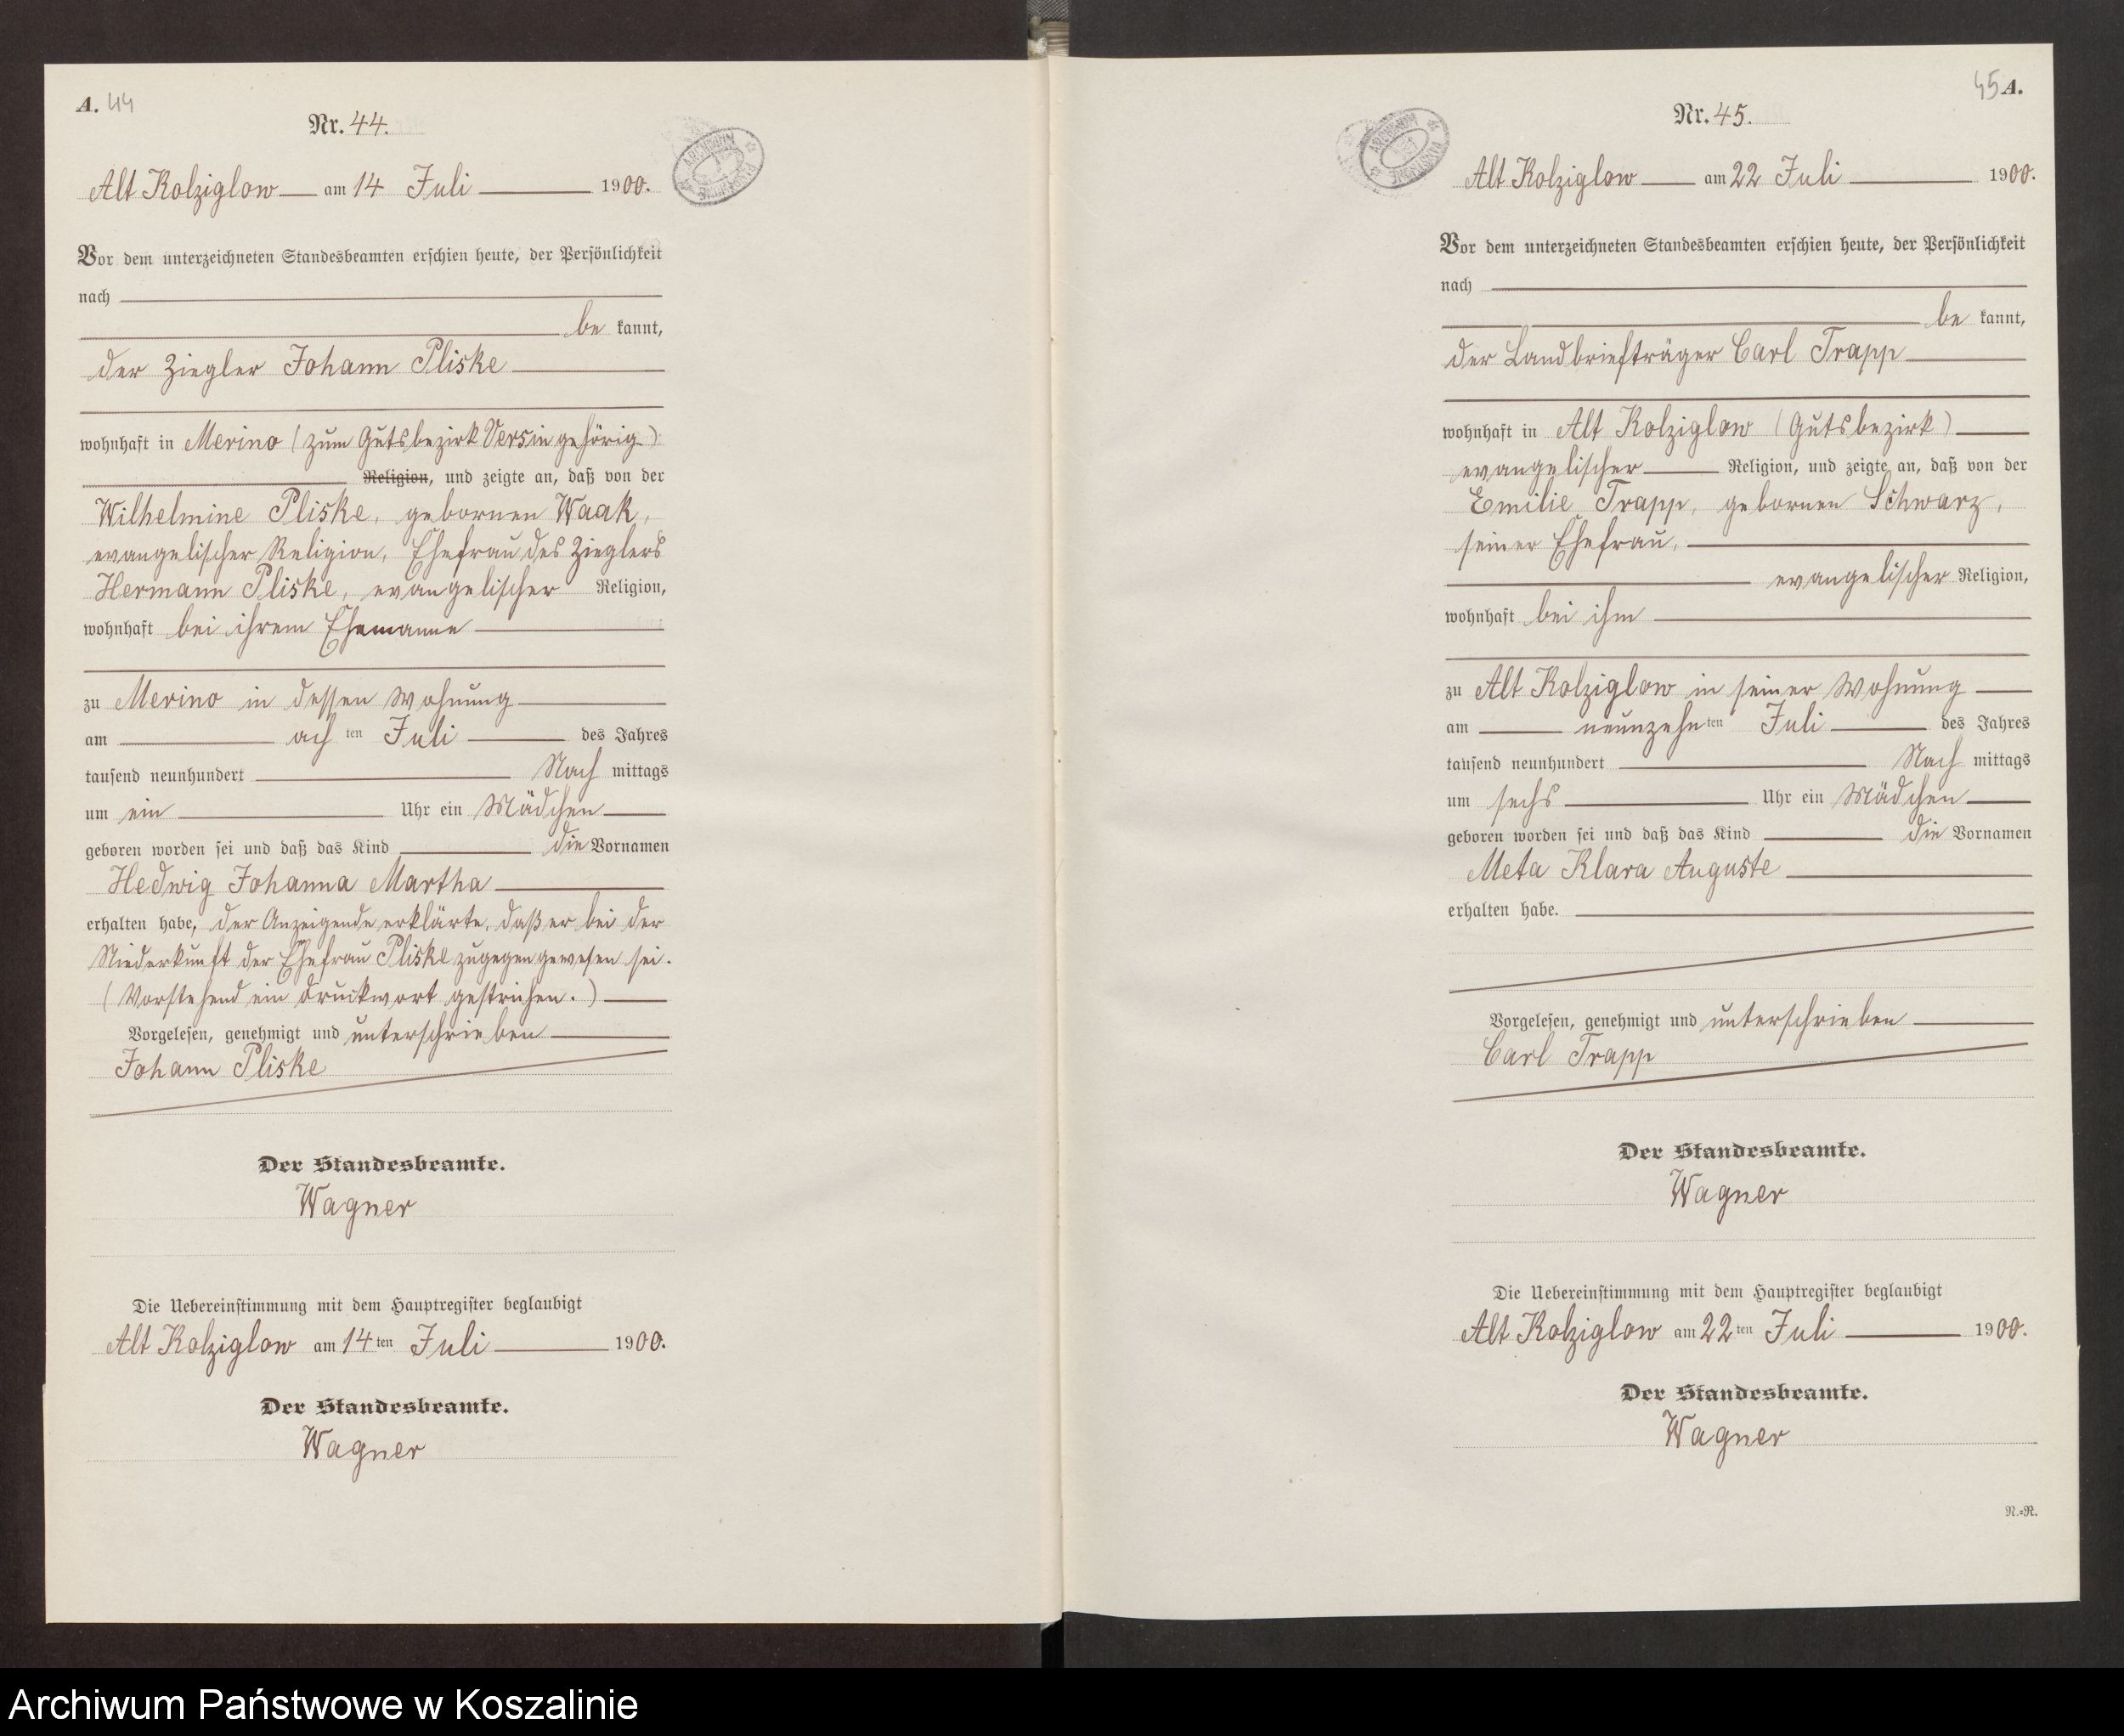 A. 44
Nr. 44.
Alt Kolziglow am 14 Juli 1900.
Vor dem unterzeichneten Standesbeamten erschien heute, der Persönlichkeit
nach
be kannt,
der Ziegler Johann Pliske
wohnhaft in Merino (zum Gutsbezirk Versin gehörig)
Religion, und zeigte an, daß von der
Wilhelmine Pliske, gebornen Waak,
evangelischer Religion, Ehefrau des Zieglers
Hermann Pliske, evangelischer Religion,
wohnhaft bei ihrem Ehemanne
zu Merino in dessen Wohnung
am ach ten Juli des Jahres
tausend neunhundert Nach mittags
um ein Uhr ein Mädchen
geboren worden sei und daß das Kind die Vornamen
Hedwig Johanna Martha
erhalten habe, der Anzeigende erklärte, daß er bei der
Niederkunft der Ehefrau Pliske zugegen gewesen sei.
(Vorstehend ein Druckwort gestrichen.)
Vorgelesen, genehmigt und unterschrieben
Johann Pliske
Der Standesbeamte.
Wagner
Die Uebereinstimmung mit dem Hauptregister beglaubigt
Alt Kolziglow am 14 ten Juli 1900.
Der Standesbeamte.
Wagner
45 A.
Nr. 45.
Alt Kolziglow am 22 Juli 1900.
Vor dem unterzeichneten Standesbeamten erschien heute, der Persönlichkeit
nach
be kannt,
der Landbriefträger Carl Trapp
wohnhaft in Alt Kolziglow (Gutsbezirk)
evangelischer Religion, und zeigte an, daß von der
Emilie Trapp, gebornen Schwarz,
seiner Ehefrau,
evangelischer Religion,
wohnhaft bei ihm
zu Alt Kolziglow in seiner Wohnung
am neunzehn ten Juli des Jahres
tausend neunhundert Nach mittags
um sechs Uhr ein Mädchen
geboren worden sei und daß das Kind die Vornamen
Meta Klara Auguste
erhalten habe.
Vorgelesen, genehmigt und unterschrieben
Carl Trapp
Der Standesbeamte.
Wagner
Die Uebereinstimmung mit dem Hauptregister beglaubigt
Alt Kolziglow am 22 ten Juli 1900.
Der Standesbeamte.
Wagner
N.=R.
Archiwum Państwowe w Koszalinie